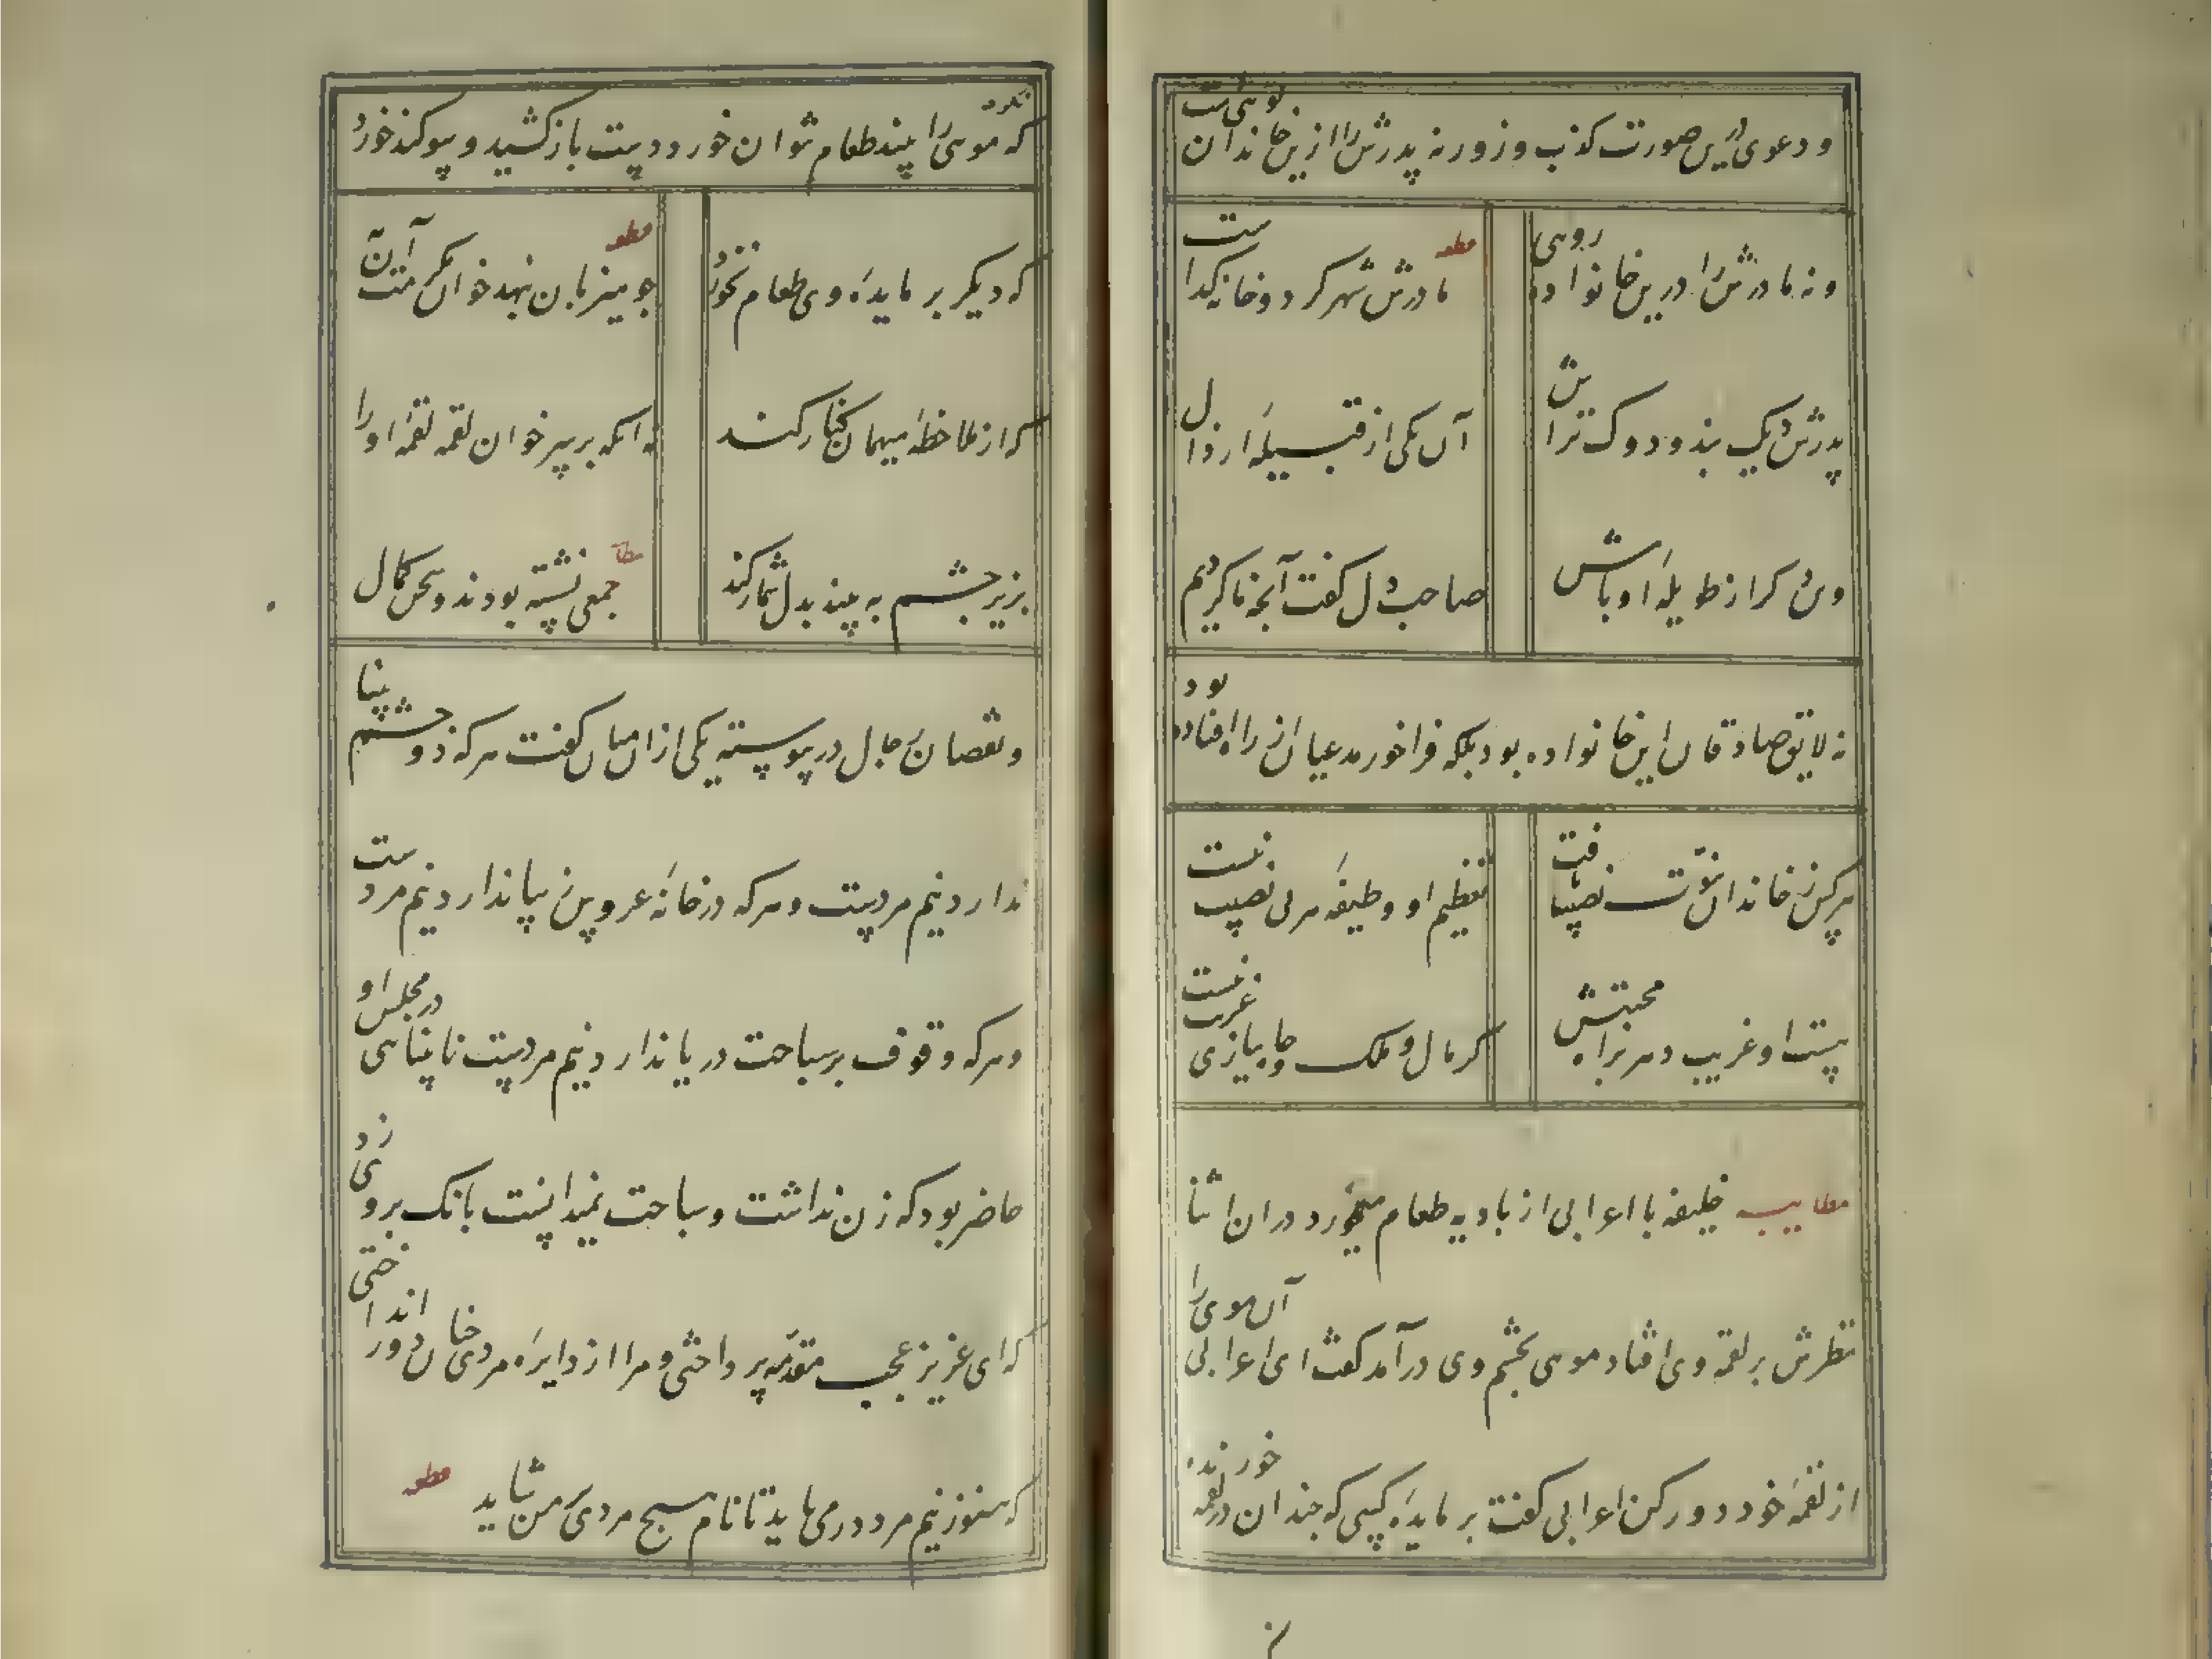 و دعوی درین صورت کذب و زور نه پدرش را ازین خاندان نوشی است
ونه مادرش را درین خانواده روی
قطعه
مادرش شهر کرد و خانه گداست
پدرش دیک بند و دوک تراش
آن یکی از قبیلهٔ ارذال
وین گر از طویلهٔ اوباش
صاحب دل گفت آنچه ما کردیم
نه لایق صادقان این خانواده بود بلکه فراخور مدعیان از راه افتاده بود
هر کس ز خاندان نبوت نصیب یافت
تعظیم او وظیفهٔ هر بی نصیب نیست
پست او غریب دهر براه محبتش
گر مال و ملک و جاه ببازی غریب نیست
مطایبه خلیفه با اعرابی از بادیه طعام میخورد در ان اثنا
نظرش بر لقمه وی افتاد مویی بچشم وی در آمد گفت ای اعرابی آن موی را
از لقمهٔ خود دور کن اعرابی گفت بر مایدهٔ کسی که چندان در لقمه خورنده نکرد
که موی را بیند طعام نتوان خورد و دست باز کشید و سوکند خورد
که دیگر بر مایدهٔ وی طعام نخورد
قطعه
چو میزبان بنهد خوان مکرمت آن
که از ملاحظهٔ میهمان کنار کند
نه آنکه بر سر خوان لقمه لقمهٔ او را
بزیر چشم به بیند بدل شمار کند
مطا
جمعی نشسته بودند و سخن کمال
و نقصان رجال در پیوسته یکی از ان میان گفت هر که دو چشم بینا
ندارد نیم مردست و هر که در خانه عروس زیبا ندارد نیم مردست
و هر که وقوف بر سباحت دریا ندارد نیم مردست نابینایی در مجلس او
حاضر بود که زن نداشت و سباحت نمیدانست بانک بروی زد
که ای عزیز عجب مقدمه پرداختی و مرا از دایرهٔ مردی چنان دور انداختی
که هنوز نیم مرد در می باید تا نام هیچ مردی من شاید
قطعه